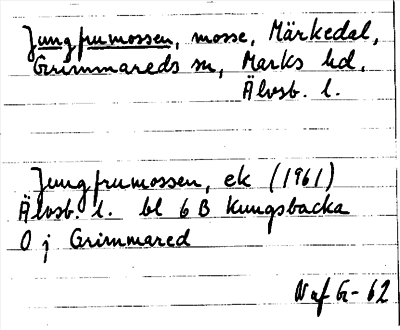 Jungfrumossen, mosse, Märkedal,
Grimmareds sn, Marks hd,
Älvsb. l.
Jungfrumossen, ek (1961)
Älvsb. l. bl 6 B Kungsbacka
O j Grimmared
N af G-62